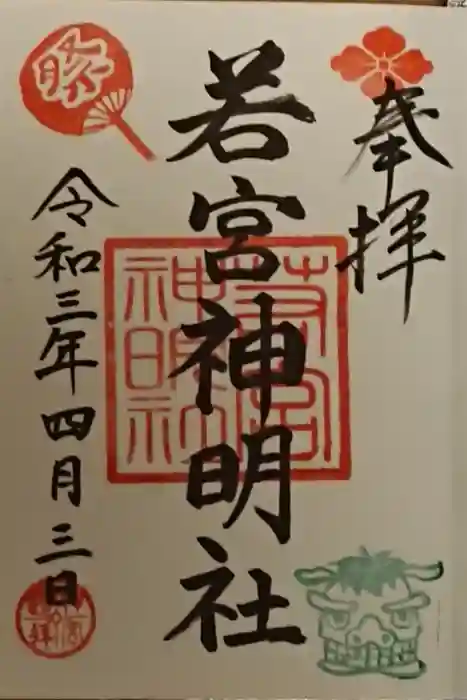 奉拝
若宮神明社
若宮
神明社
祭
令和三年四月三日